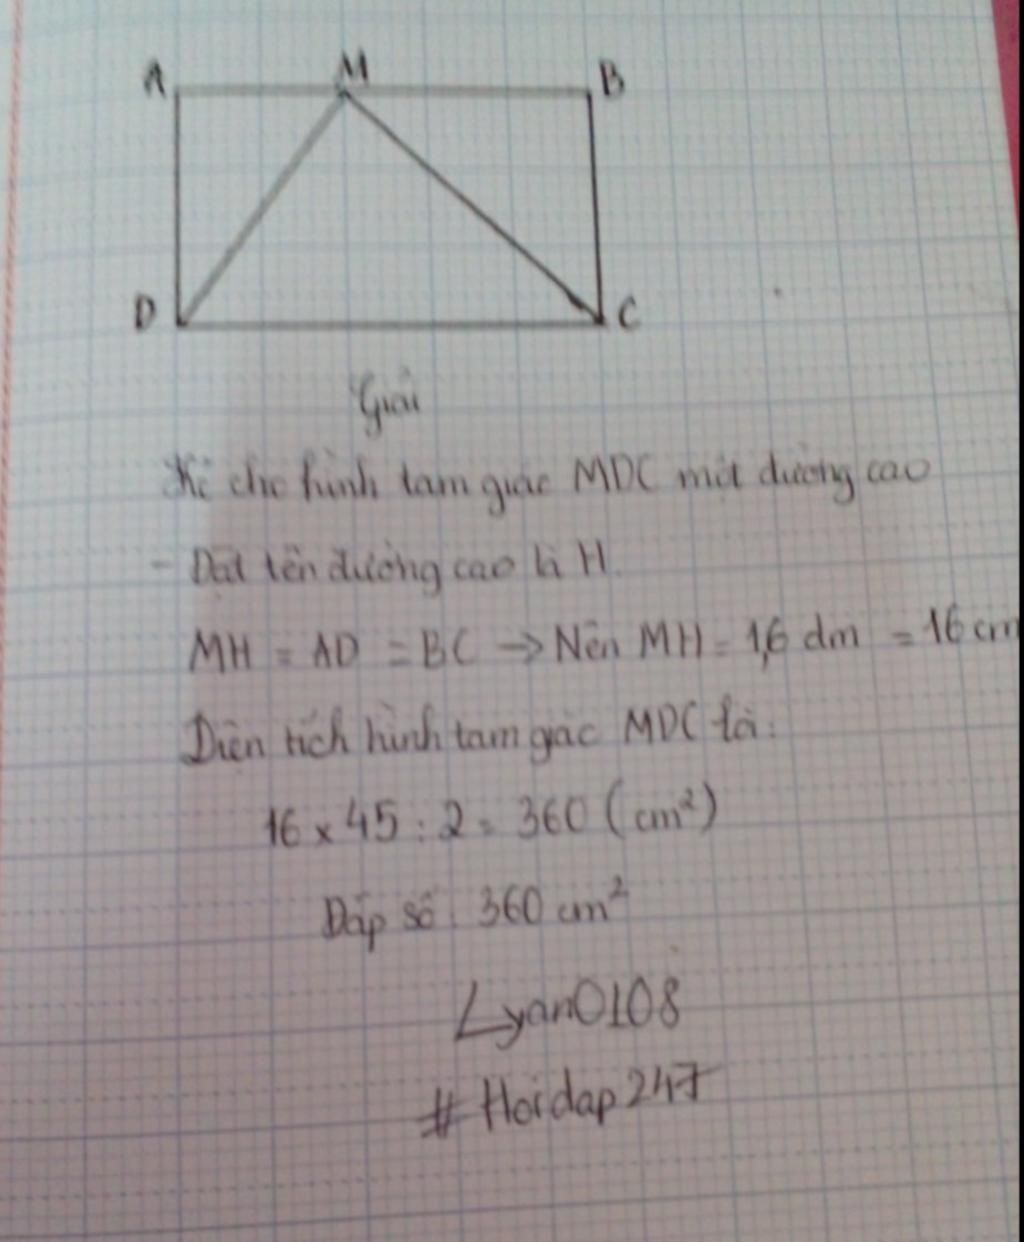 A M B
D C
Giải
Kẻ cho hình tam giác MDC một đường cao
- Đặt tên đường cao là H.
MH = AD = BC → Nên MH = 1,6 dm = 16 cm
Diện tích hình tam gác MDC là:
16 x 45 : 2 = 360 (cm²)
Đáp số : 360 cm²
Lyan0108
# Hoidap247